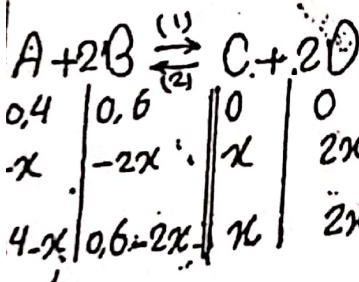 A + 2B (1) ⇌ (2) C + 2D
0,4 | 0,6 || 0 | 0
-x | -2x || x | 2x
4-x | 0,6-2x || x | 2x